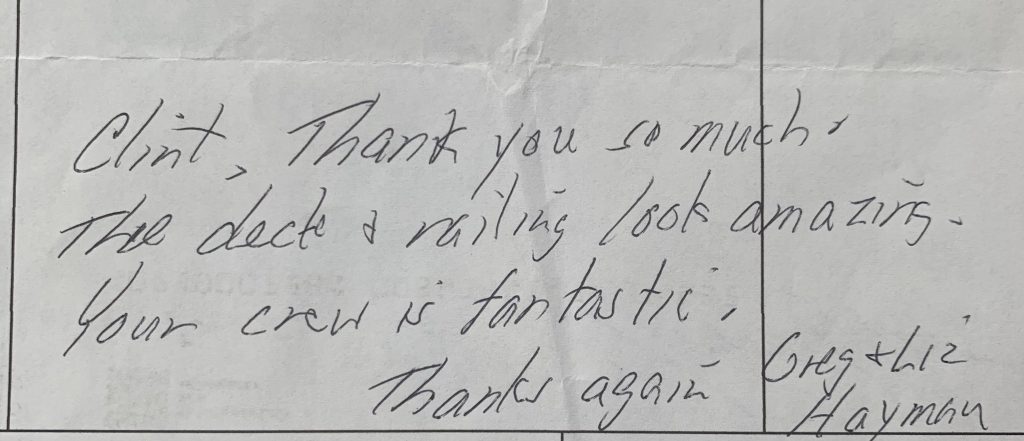 Clint, Thank you so much.
The deck & railing look amazing.
Your crew is fantastic.
Thanks again
Greg & Liz
Hayman